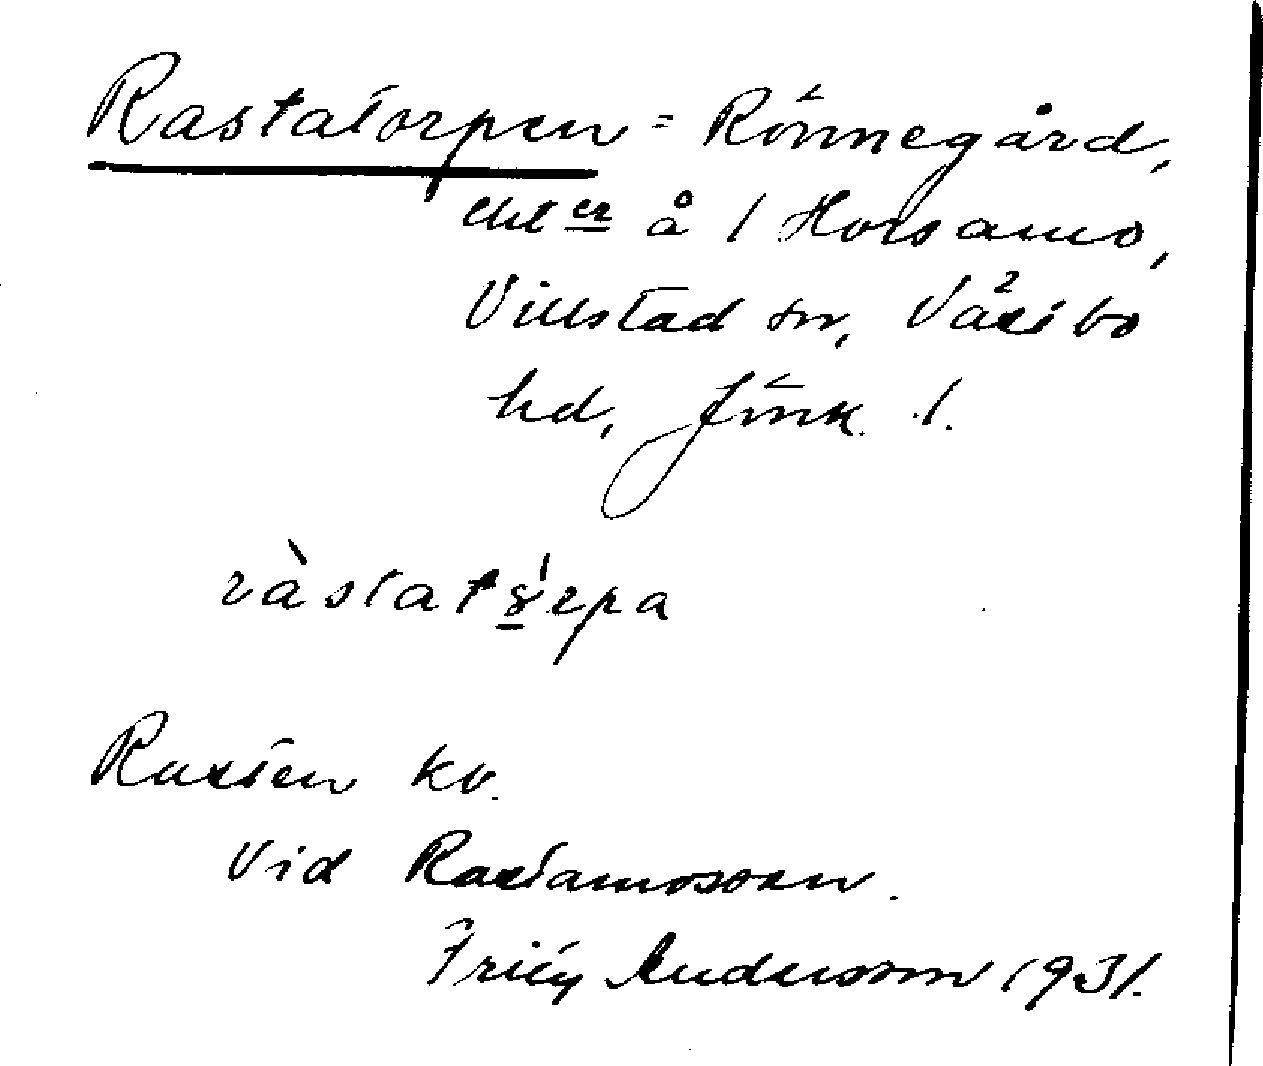 Rastatorpen = Rönnegård,
är å 1 Horsamo,
Villstad sn, Västbo
hd, Jönk. l.
ràstatɤ̲́rpa
Rasten kv.
Vid Rastamossen.
Fritz Andersson 1931.